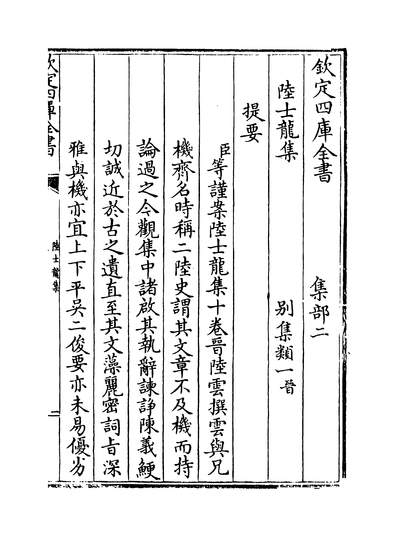 欽定四庫全書 集部二
陸士龍集 別集類一晉
提要
臣等謹案陸士龍集十卷晉陸雲撰雲與兄
機齊名時稱二陸史謂其文章不及機而持
論過之今觀集中諸啟其執辭諫諍陳義鯁
切誠近於古之遺直至其文藻麗密詞旨深
雅與機亦宜上下平吳二俊要亦未易優劣
欽定四庫全書
陸士龍集